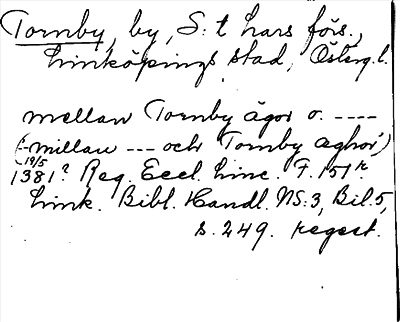 Tornby, by, S:t Lars förs.,
Linköpings stad, Österg. l.
mellan Tornby ägor o. ----
(-millan --- och Tornby æghor)
19/5
1381? Reg. Eccl. Linc. F. 151r
Link. Bibl. Handl. NS:3, Bil. 5,
s. 249. regest.